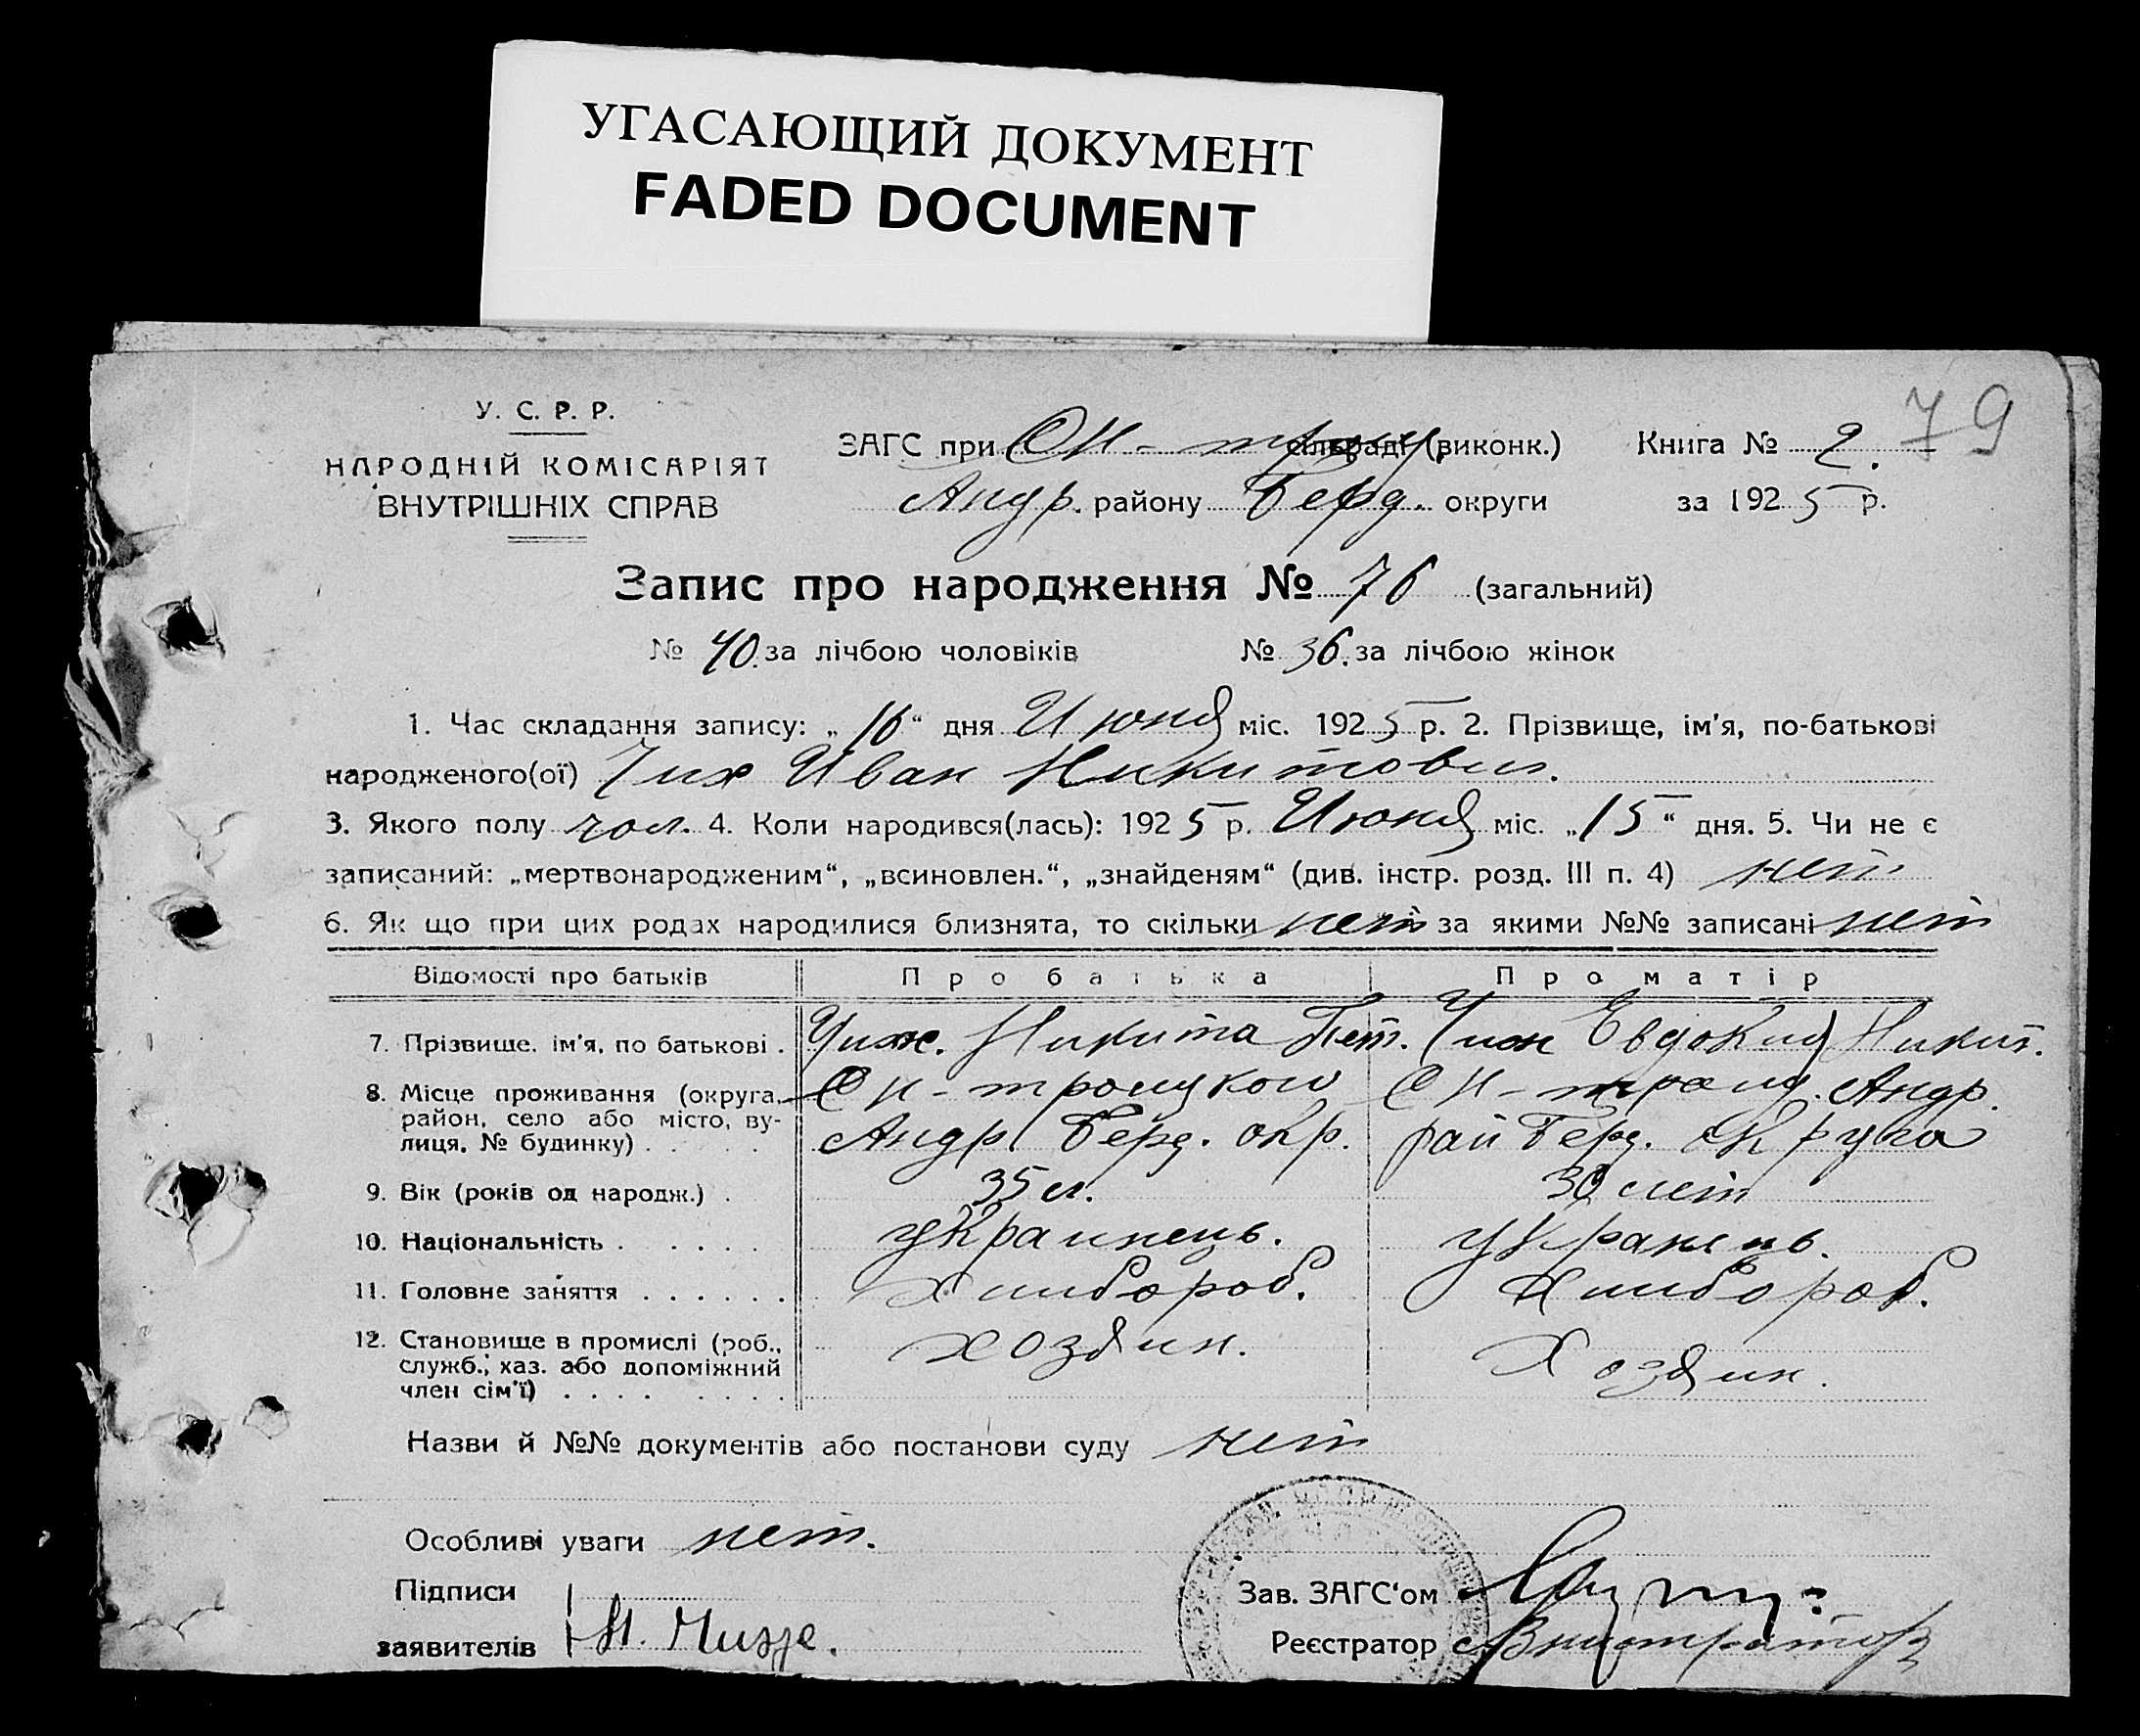 УГАСАЮЩИЙ ДОКУМЕНТ
FADED DOCUMENT
79
У. С. Р. Р.
НАРОДНІЙ КОМІСАРІЯТ
ВНУТРІШНІХ СПРАВ
ЗАГС при сільраді (виконк.) Книга № 2.
Андр. району Берд. округи за 1925 р.
Запис про народження № 76 (загальний)
№ 40. за лічбою чоловіків № 36. за лічбою жінок
1. Час складання запису: „16“ дня Июня міс. 1925 р. 2. Прізвище, ім'я, по-батькові
народженого(ої) Чиж Иван Никитович.
3. Якого полу чол. 4. Коли народився(лась): 1925 р. Июня міс. „15“ дня. 5. Чи не є
записаний: „мертвонародженим“, „всиновлен.“, „знайденям“ (див. інстр. розд. III п. 4) нет
6. Як що при цих родах народилися близнята, то скільки нет за якими №№ записані нет
Відомості про батьків Про батька Про матір
7. Прізвище, ім'я, по батькові . Чиж. Никита Пет. Чиж Евдокия Никит.
8. Місце проживання (округа, район, село або місто, вулиця, № будинку) . . . Андр. Берд. окр. Андр. рай Берд. округа
9. Вік (років од народж.) . 35 л. 30 лет
10. Національність . . . . . Украинець. Украинець.
11. Головне заняття . . . . . . Хлибороб. Хлибороб.
12. Становище в промислі (роб., служб., хаз. або допоміжний член сім'ї) . . . . . . . . Хозяин. Хозяин.
Назви й №№ документів або постанови суду нет
Особливі уваги нет.
Підписи
заявителів Н. Чиж
Зав. ЗАГС'ом
Реєстратор